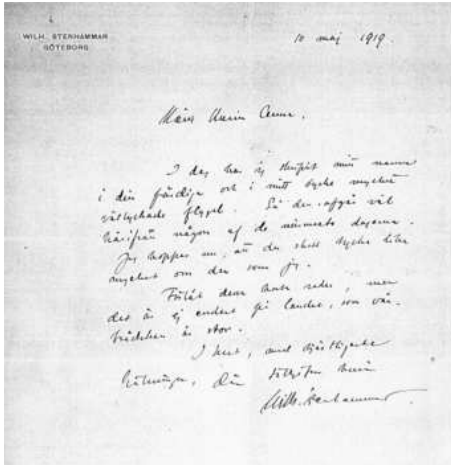 WILH. STENHAMMAR
GÖTEBORG
10 maj 1919.
Kära Anna.
I dag har jag skrifvit mitt namn
i din färdiga och i mitt tycke mycket
välllyckade flygel. Så den afgår väl
härifrån någon af de närmaste dagarna.
Jag hoppas nu, att du skall tycka lika
mycket om den som jag.
Förlåt dessa korta rader, men
det är ej endast på landet, som vår-
brådskan är stor.
I hast, med hjärtligaste
hälsningar, Din tillgifne
Wilh. Stenhammar